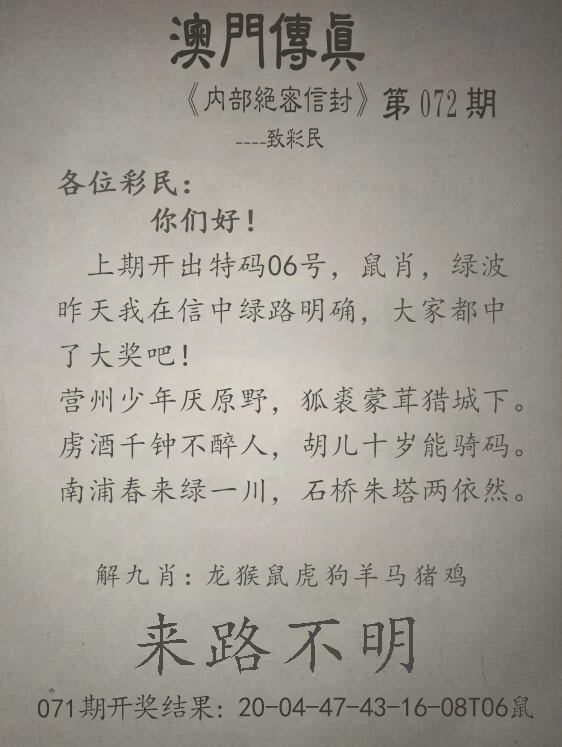 澳門傳眞
《内部絕密信封》第072期
----致彩民
各位彩民：
你们好！
上期开出特码06号，鼠肖，绿波
昨天我在信中绿路明确，大家都中
了大奖吧！
营州少年厌原野，狐裘蒙茸猎城下。
虏酒千钟不醉人，胡儿十岁能骑码。
南浦春来绿一川，石桥朱塔两依然。
解九肖：龙猴鼠虎狗羊马猪鸡
来路不明
071期开奖结果：20-04-47-43-16-08T06鼠